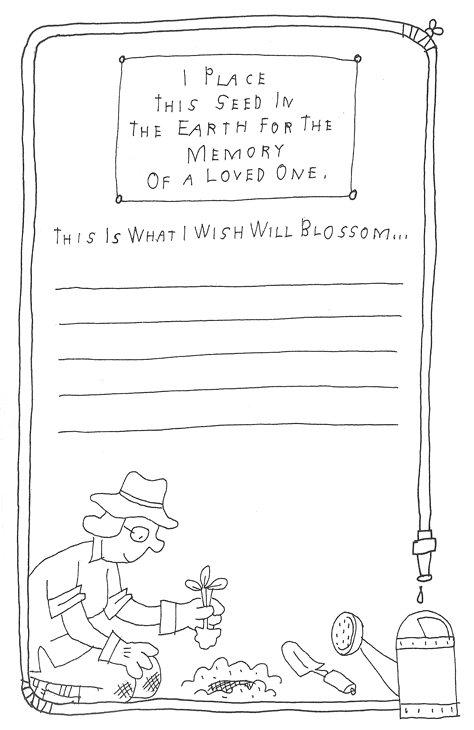 I PLACE
THIS SEED IN
THE EARTH FOR THE
MEMORY
OF A LOVED ONE.
THIS IS WHAT I WISH WILL BLOSSOM...